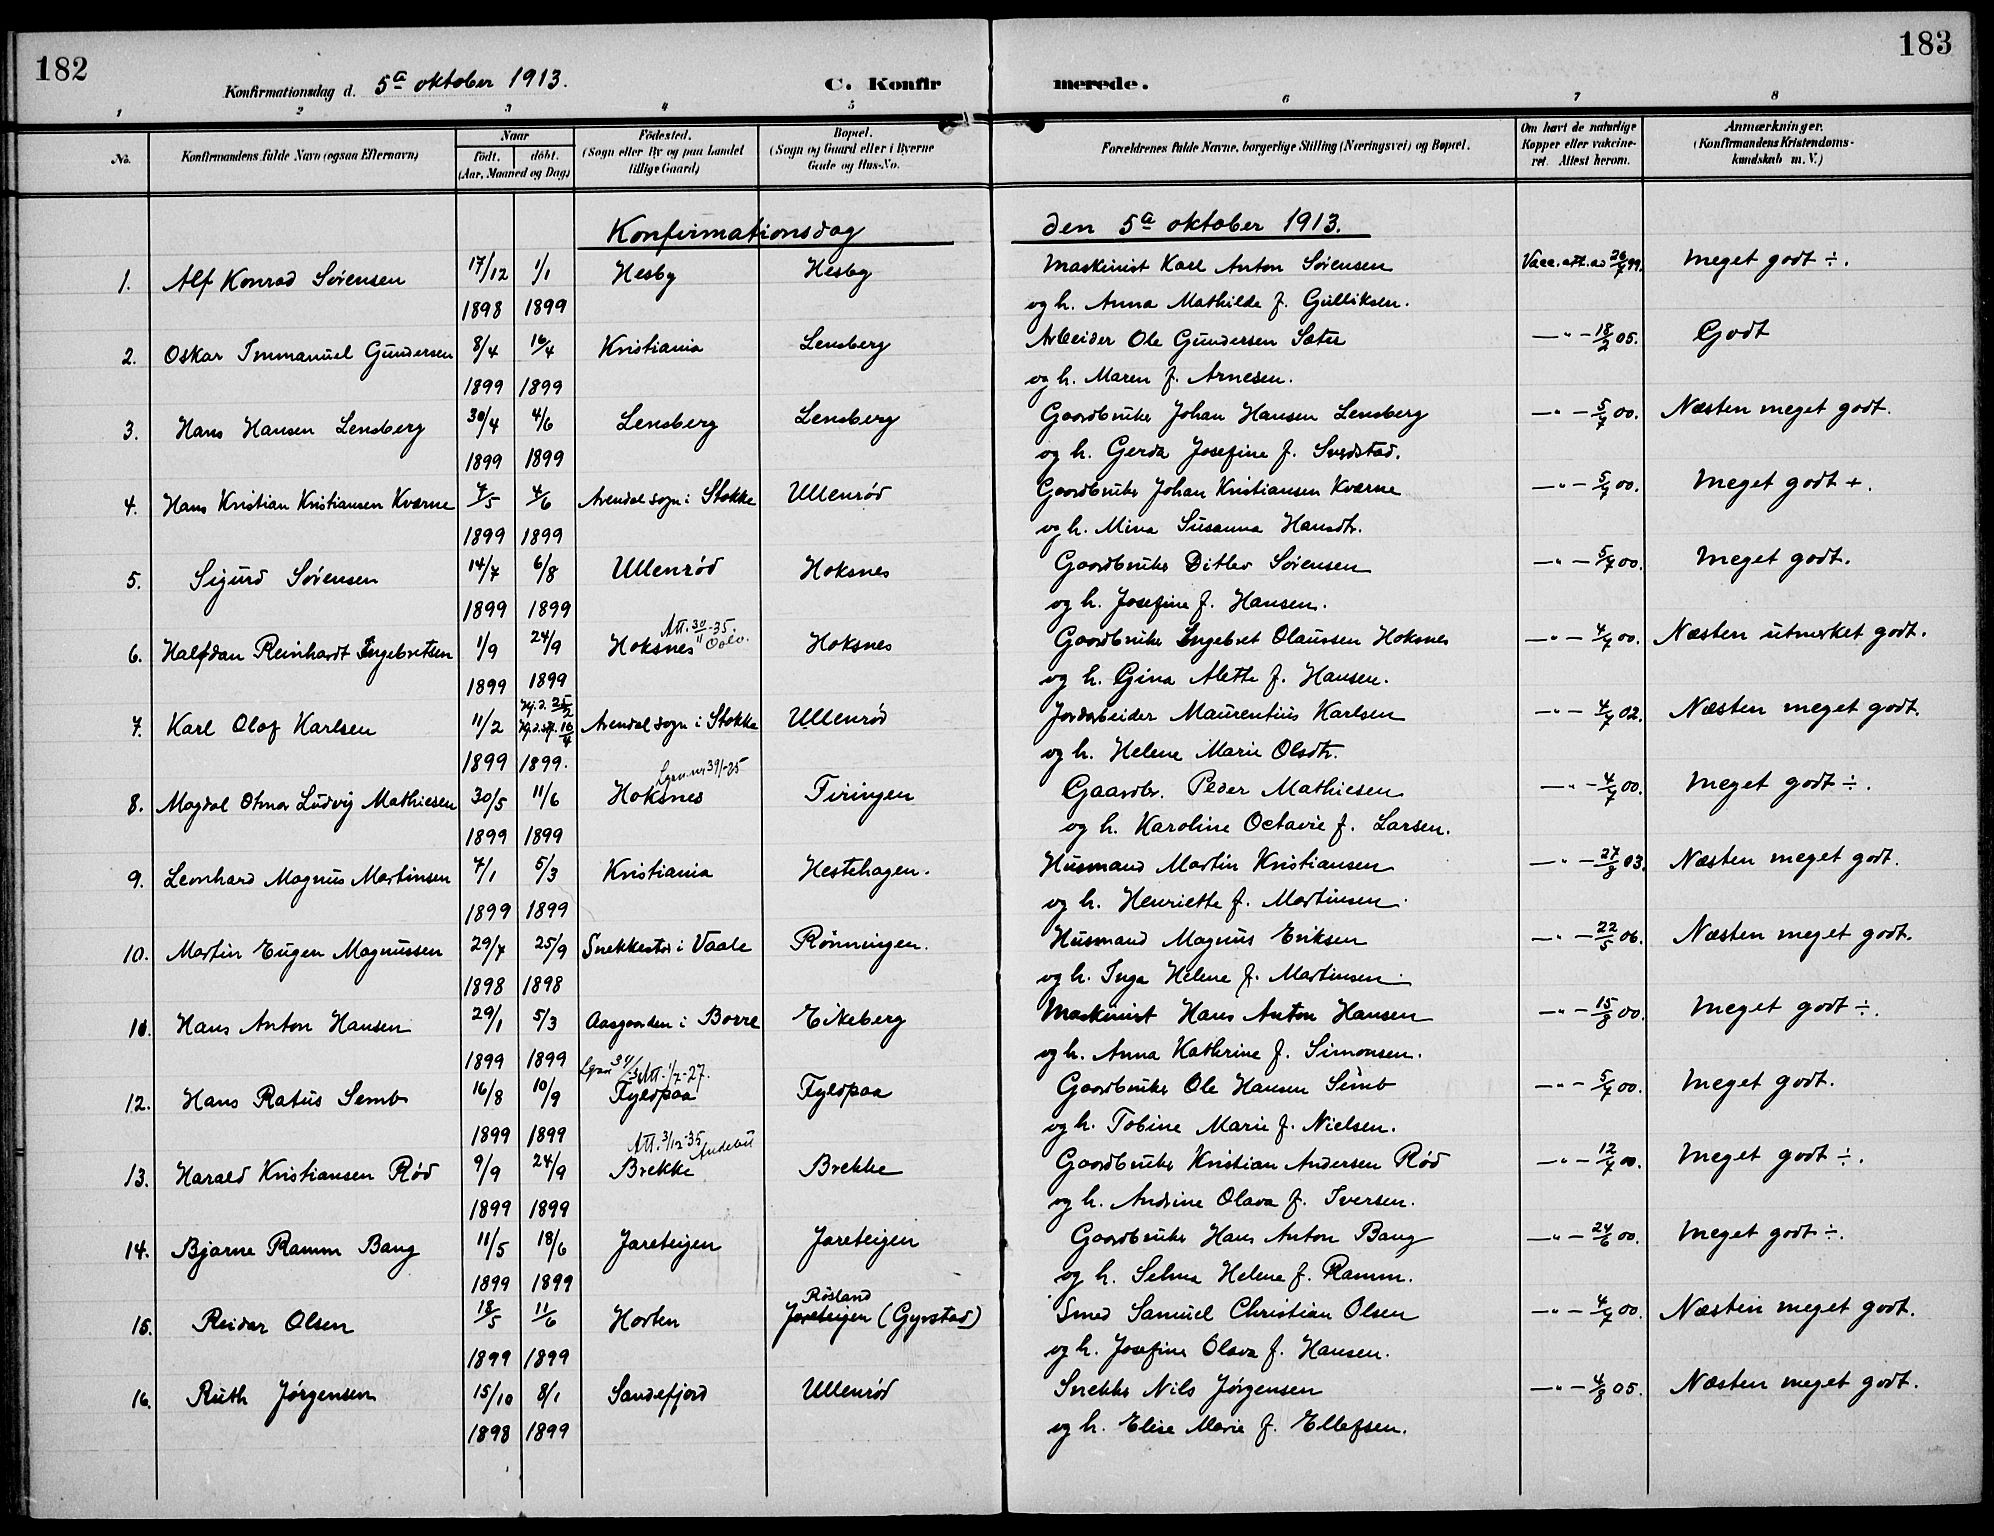 182
183
Konfirmationsdag d. 5ª oktober 1913.
C. Konfir merede.
1 2 3 4 5 6 7 8
No.
Konfirmandens fulde Navn (ogsaa Efternavn)
Naar
födt. döbt.
(Aar, Maaned og Dag)
Födested.
(Sogn eller By og paa Landet
tillige Gaard)
Bopæl.
(Sogn og Gaard eller i Byerne
Gade og Hus-No.
Forældrenes fulde Navne, borgerlige Stilling (Næringsvei) og Bopæl.
Om havt de naturlige
Kopper eller vakcine-
ret. Attest herom.
Anmærkninger.
(Konfirmandens Kristendoms-
kundskab m. V.)
Konfirmationsdag den 5ª oktober 1913.
1. Alf Konrad Sørensen 17/12 1/1 Hesby Hesby Maskinist Karl Anton Sørensen Vacc.att.av 26/7 99. Meget godt ÷.
1898 1899 og h. Anna Mathilde f. Gulliksen.
2. Oskar Immanuel Gundersen 8/4 16/4 Kristiania Lensberg Arbeider Ole Gundersen Sæter —"— 18/2 05. Godt
1899 1899 og h. Maren f. Arnesen.
3. Hans Hansen Lensberg 30/4 4/6 Lensberg Lensberg Gaardbruker Johan Hansen Lensberg —"— 5/7 00. Næsten meget godt.
1899 1899 og h. Gerda Josefine f. Sverdstad.
4. Hans Kristian Kristiansen Kværne 7/5 4/6 Arendal sogn i Stokke Ullenrød Gaardbruker Johan Kristiansen Kværne —"— 5/7 00. Meget godt +.
1899 1899 og h. Mina Susanna Hansdtr.
5. Sigurd Sørensen 14/7 6/8 Ullenrød Hoksnes Gaardbruker Ditlev Sørensen —"— 5/7 00. Meget godt.
1899 1899 og h. Josefine f. Hansen.
Att. 30/11-35.
6. Halfdan Reinhardt Ingebretsen 1/9 24/9 Hoksnes Hoksnes Gaardbruker Ingebret Olaussen Hoksnes —"— 4/7 00. Næsten utmerket godt.
1899 1899 og h. Gina Alette f. Hansen.
Hj.d. 25/2
7. Karl Olaf Karlsen 11/2 16/4 Arendal sogn i Stokke Ullenrød Jordarbeider Maurentius Karlsen —"— 4/7 02. Næsten meget godt.
1899 1899. og h. Helene Marie Olsdtr.
8. Magdal Otmar Ludvig Mathiesen 30/5 11/6 Hoksnes Firingen Gaardbr. Peder Mathiesen —"— 4/7 00. Meget godt ÷.
1899 1899 og h. Karoline Octavie f. Larsen.
9. Leonhard Magnus Martinsen 7/1 5/3 Kristiania Hestehagen. Husmand Martin Kristiansen —"— 27/8 03. Næsten meget godt.
1899 1899 og h. Henriette f. Martinsen.
10. Martin Eugen Magnussen 29/7 25/9 Snekkestad i Vaale Rønningen. Husmand Magnus Eriksen —"— 22/5 06. Næsten meget godt.
1898 1898 og h. Inga Helene f. Martinsen.
11. Hans Anton Hansen 29/1 5/3 Aasgaarden i Borre Eikeberg Maskinist Hans Anton Hansen —"— 15/8 00. Meget godt ÷.
1899 1899 og h. Anna Kathrine f. Simonsen.
12. Hans Ratus Semb 16/8 10/9 Fyldpaa Fyldpaa Gaardbruker Ole Hansen Semb —"— 5/7 00. Meget godt.
1899 1899 og h. Tobine Marie f. Nielsen.
Att. 3/12-35 Andebu
13. Harald Kristiansen Rød 9/9 24/9 Brekke Brekke Gaardbruker Kristian Andersen Rød —"— 12/7 00. Meget godt ÷.
1899 1899 og h. Andrine Olava f. Iversen.
14. Bjarne Ramm Bang 11/5 18/6 Jareteigen Jareteigen Gaardbruker Hans Anton Bang —"— 24/6 00. Meget godt ÷.
1899 1899 og h. Selma Helene f. Ramm.
Røsland
15. Reidar Olsen 13/5 11/6 Horten Jareteigen (Gyrstad) Smed Samuel Christian Olsen —"— 4/7 00. Næsten meget godt.
1899 1899 og h. Josefine Olava f. Hansen.
16. Ruth Jørgensen 15/10 8/1 Sandefjord Ullenrød Snekker Nils Jørgensen —"— 4/8 05. Næsten meget godt.
1898 1899 og h. Elise Marie f. Ellefsen.